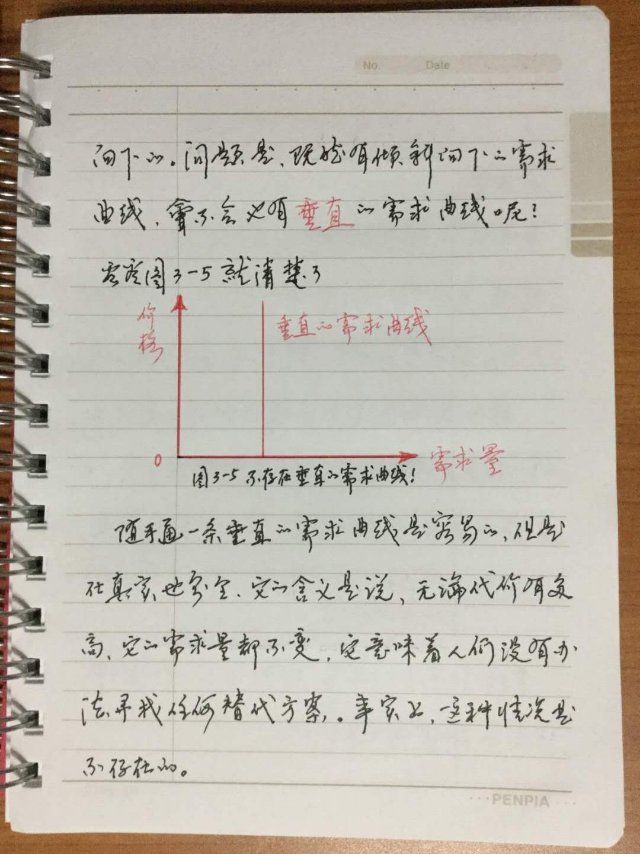 No.  Date
向下的。问题是,既然有倾斜向下的需求
曲线,會不会也有垂直的需求曲线呢?
看看图3-5就清楚了
价格
垂直的需求曲线
0
需求量
图3-5 不存在垂直的需求曲线!
随手画一条垂直的需求曲线是容易的,但是
在真实世界里,它的含义是说,无論代价有多
高,它的需求量都不变,这意味着人们没有办
法寻找任何替代方案。事实上,这种情况是
不存在的。
···PENPIA···